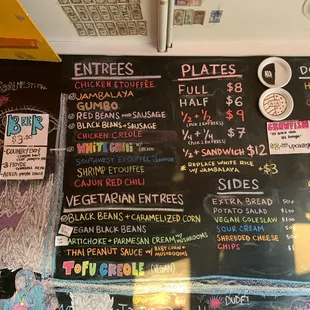 ENTREES
CHICKEN ETOUFFÉE
JAMBALAYA
GUMBO
RED BEANS AND SAUSAGE
BLACK BEANS + SAUSAGE
CHICKEN CREOLE
WHITE CHILI
SOUTHWEST ETOUFFÉE
SHRIMP ETOUFFÉE
CAJUN RED CHILI
VEGETARIAN ENTREES
BLACK BEANS + CARAMELIZED CORN
VEGAN BLACK BEANS
ARTICHOKE + PARMESAN CREAM W/ MUSHROOMS
THAI PEANUT SAUCE W/ BABY CORN + MUSHROOMS
TOFU CREOLE (VEGAN)
PLATES
FULL $8
HALF $6
1/2 + 1/2 $9
(PICK 2 ENTREES)
1/4 + 1/4 $7
(PICK 2 ENTREES)
1/2 SANDWICH $12
REPLACE WHITE RICE
W/ JAMBALAYA +$3
SIDES
EXTRA BREAD 50¢
POTATO SALAD
VEGAN COLESLAW
SOUR CREAM
SHREDDED CHEESE
CHIPS
BEER
CRAWFISH
DUDE!